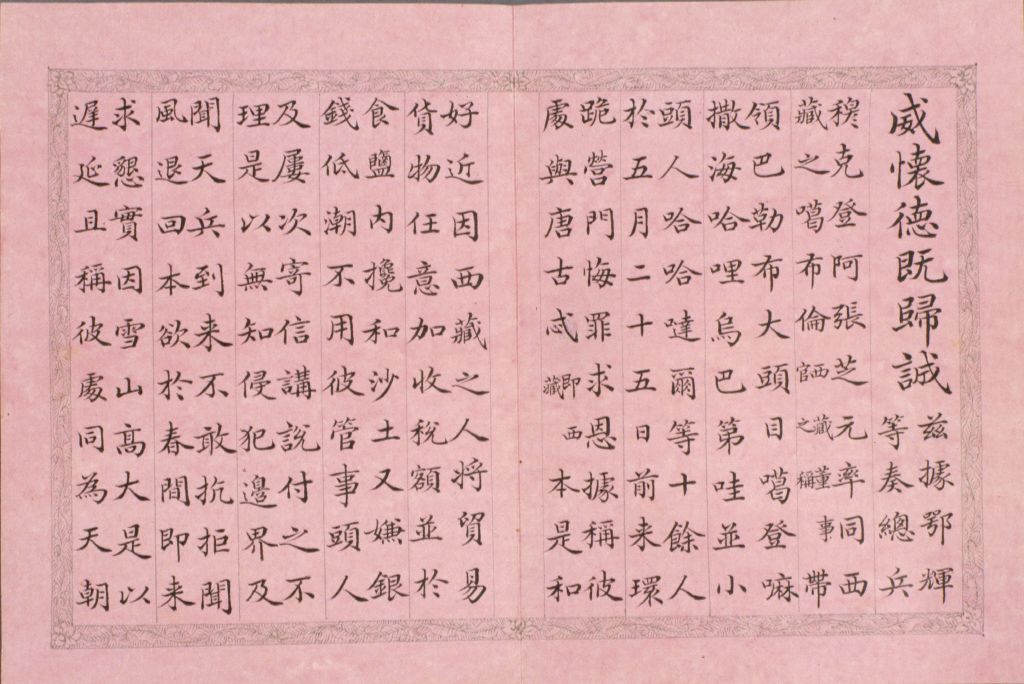 威懷德既歸誠茲據鄂輝
等奏總兵
穆克登阿張芝元率同西
藏之噶布倫西藏董事官之稱帶
領巴勒布大頭目噶登嘛
撒海哈哩烏巴第哇並小
頭人哈哈噠爾等十餘人
於五月二十五日前来環
跪營門悔罪求恩據稱彼
處與唐古忒即西藏本是和
好近因西藏之人將貿易
貨物任意加收稅額並於
食鹽內攙和沙土又嫌銀
錢低潮不用彼管事頭人
及屢次寄信講說付之不
理是以無知侵犯邊界及
聞天兵到来不敢抗拒聞
風退回本欲於春間即来
求懇實因雪山髙大是以
遲延且稱彼處同為天朝